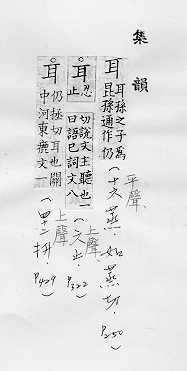 集韻
耳 耳孫之子為
昆孫通作仍
(十六蒸·如蒸切·
平聲
P250)
耳 忍止
切說文主聽也一
曰語已詞文八
(六止·
上聲
P322)
耳 仍拯切耳也關
中河東藏文一
(四十二拼·
上聲
P429)